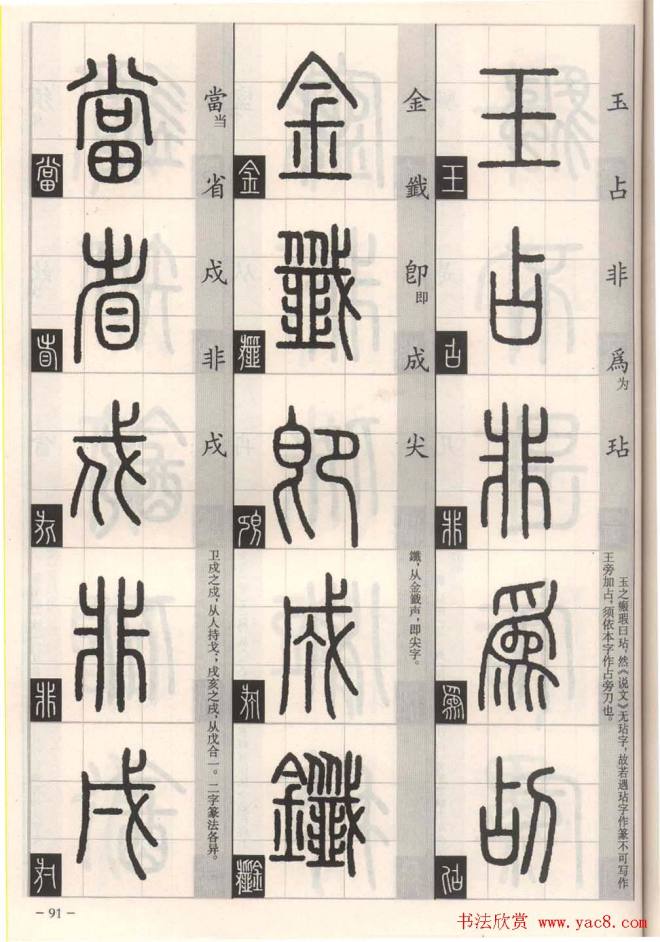 玉占非爲为玷
玉
占
非
爲
玉之瘢瑕曰玷,然《说文》无玷字,故若遇玷字作篆不可写作
王旁加占,须依本字作占旁刀也。
金韱卽即成尖
金
韱
卽
成
鑯
鑯,从金韱声,即尖字。
當当省戍非戌
當
省
戍
非
戌
卫戍之戍,从人持戈;戌亥之戌,从戊合一。二字篆法各异。
－91－
书法欣赏 www.yac8.com